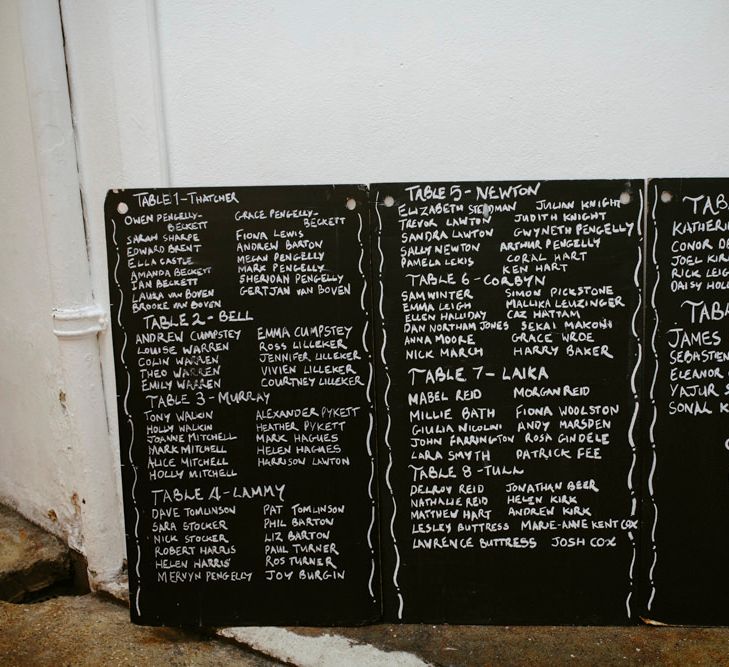 TABLE 1-THATCHER
OWEN PENGELLY-
BECKETT
SARAH SHARPE
EDWARD BRENT
ELLA CASTLE
AMANDA BECKETT
IAN BECKETT
LAURA VAN BOVEN
BROOKE VAN BOVEN
GRACE PENGELLY-
BECKETT
FIONA LEWIS
ANDREW BARTON
MEGAN PENGELLY
MARK PENGELLY
SHERIDAN PENGELLY
GERTJAN VAN BOVEN
TABLE 2-BELL
ANDREW CUMPSTEY
LOUISE WARREN
COLIN WARREN
THEO WARREN
EMILY WARREN
EMMA CUMPSTEY
ROSS LILLEKER
JENNIFER LILLEKER
VIVIEN LILLEKER
COURTNEY LILLEKER
TABLE 3-MURRAY
TONY WALKIN
HOLLY WALKIN
JOANNE MITCHELL
MARK MITCHELL
ALICE MITCHELL
HOLLY MITCHELL
ALEXANDER PYKETT
HEATHER PYKETT
MARK HAGUES
HELEN HAGUES
HARRISON LAWTON
TABLE 4-LAMMY
DAVE TOMLINSON
SARA STOCKER
NICK STOCKER
ROBERT HARRIS
HELEN HARRIS
MERVYN PENGELLY
PAT TOMLINSON
PHIL BARTON
LIZ BARTON
PAUL TURNER
ROS TURNER
JOY BURGIN
TABLE 5-NEWTON
ELIZABETH STEDMAN
TREVOR LAWTON
SANDRA LAWTON
SALLY NEWTON
PAMELA LEWIS
JULIAN KNIGHT
JUDITH KNIGHT
GWYNETH PENGELLY
ARTHUR PENGELLY
CORAL HART
KEN HART
TABLE 6-CORBYN
SAM WINTER
EMMA LEIGH
ELLEN HALLIDAY
DAN NORTHAM JONES
ANNA MOORE
NICK MARCH
SIMON PICKSTONE
MALLIKA LEUZINGER
CAZ HATTAM
SEKAI MAKONI
GRACE WROE
HARRY BAKER
TABLE 7-LAIKA
MABEL REID
MILLIE BATH
GIULIA NICOLNI
JOHN FARRINGTON
LARA SMYTH
MORGAN REID
FIONA WOOLSTON
ANDY MARSDEN
ROSA GINDELE
PATRICK FEE
TABLE 8-TULL
DELROY REID
NATHALIE REID
MATTHEW HART
LESLEY BUTTRESS
LAWRENCE BUTTRESS
JONATHAN BEER
HELEN KIRK
ANDREW KIRK
MARIE-ANNE KENT COX
JOSH COX
TAB
KATHERI
CONOR DE
JOEL KIR
RICK LEIG
DAISY HOLL
TABL
JAMES
SEBASTIEN
ELEANOR
YAJUR S
SONAL K